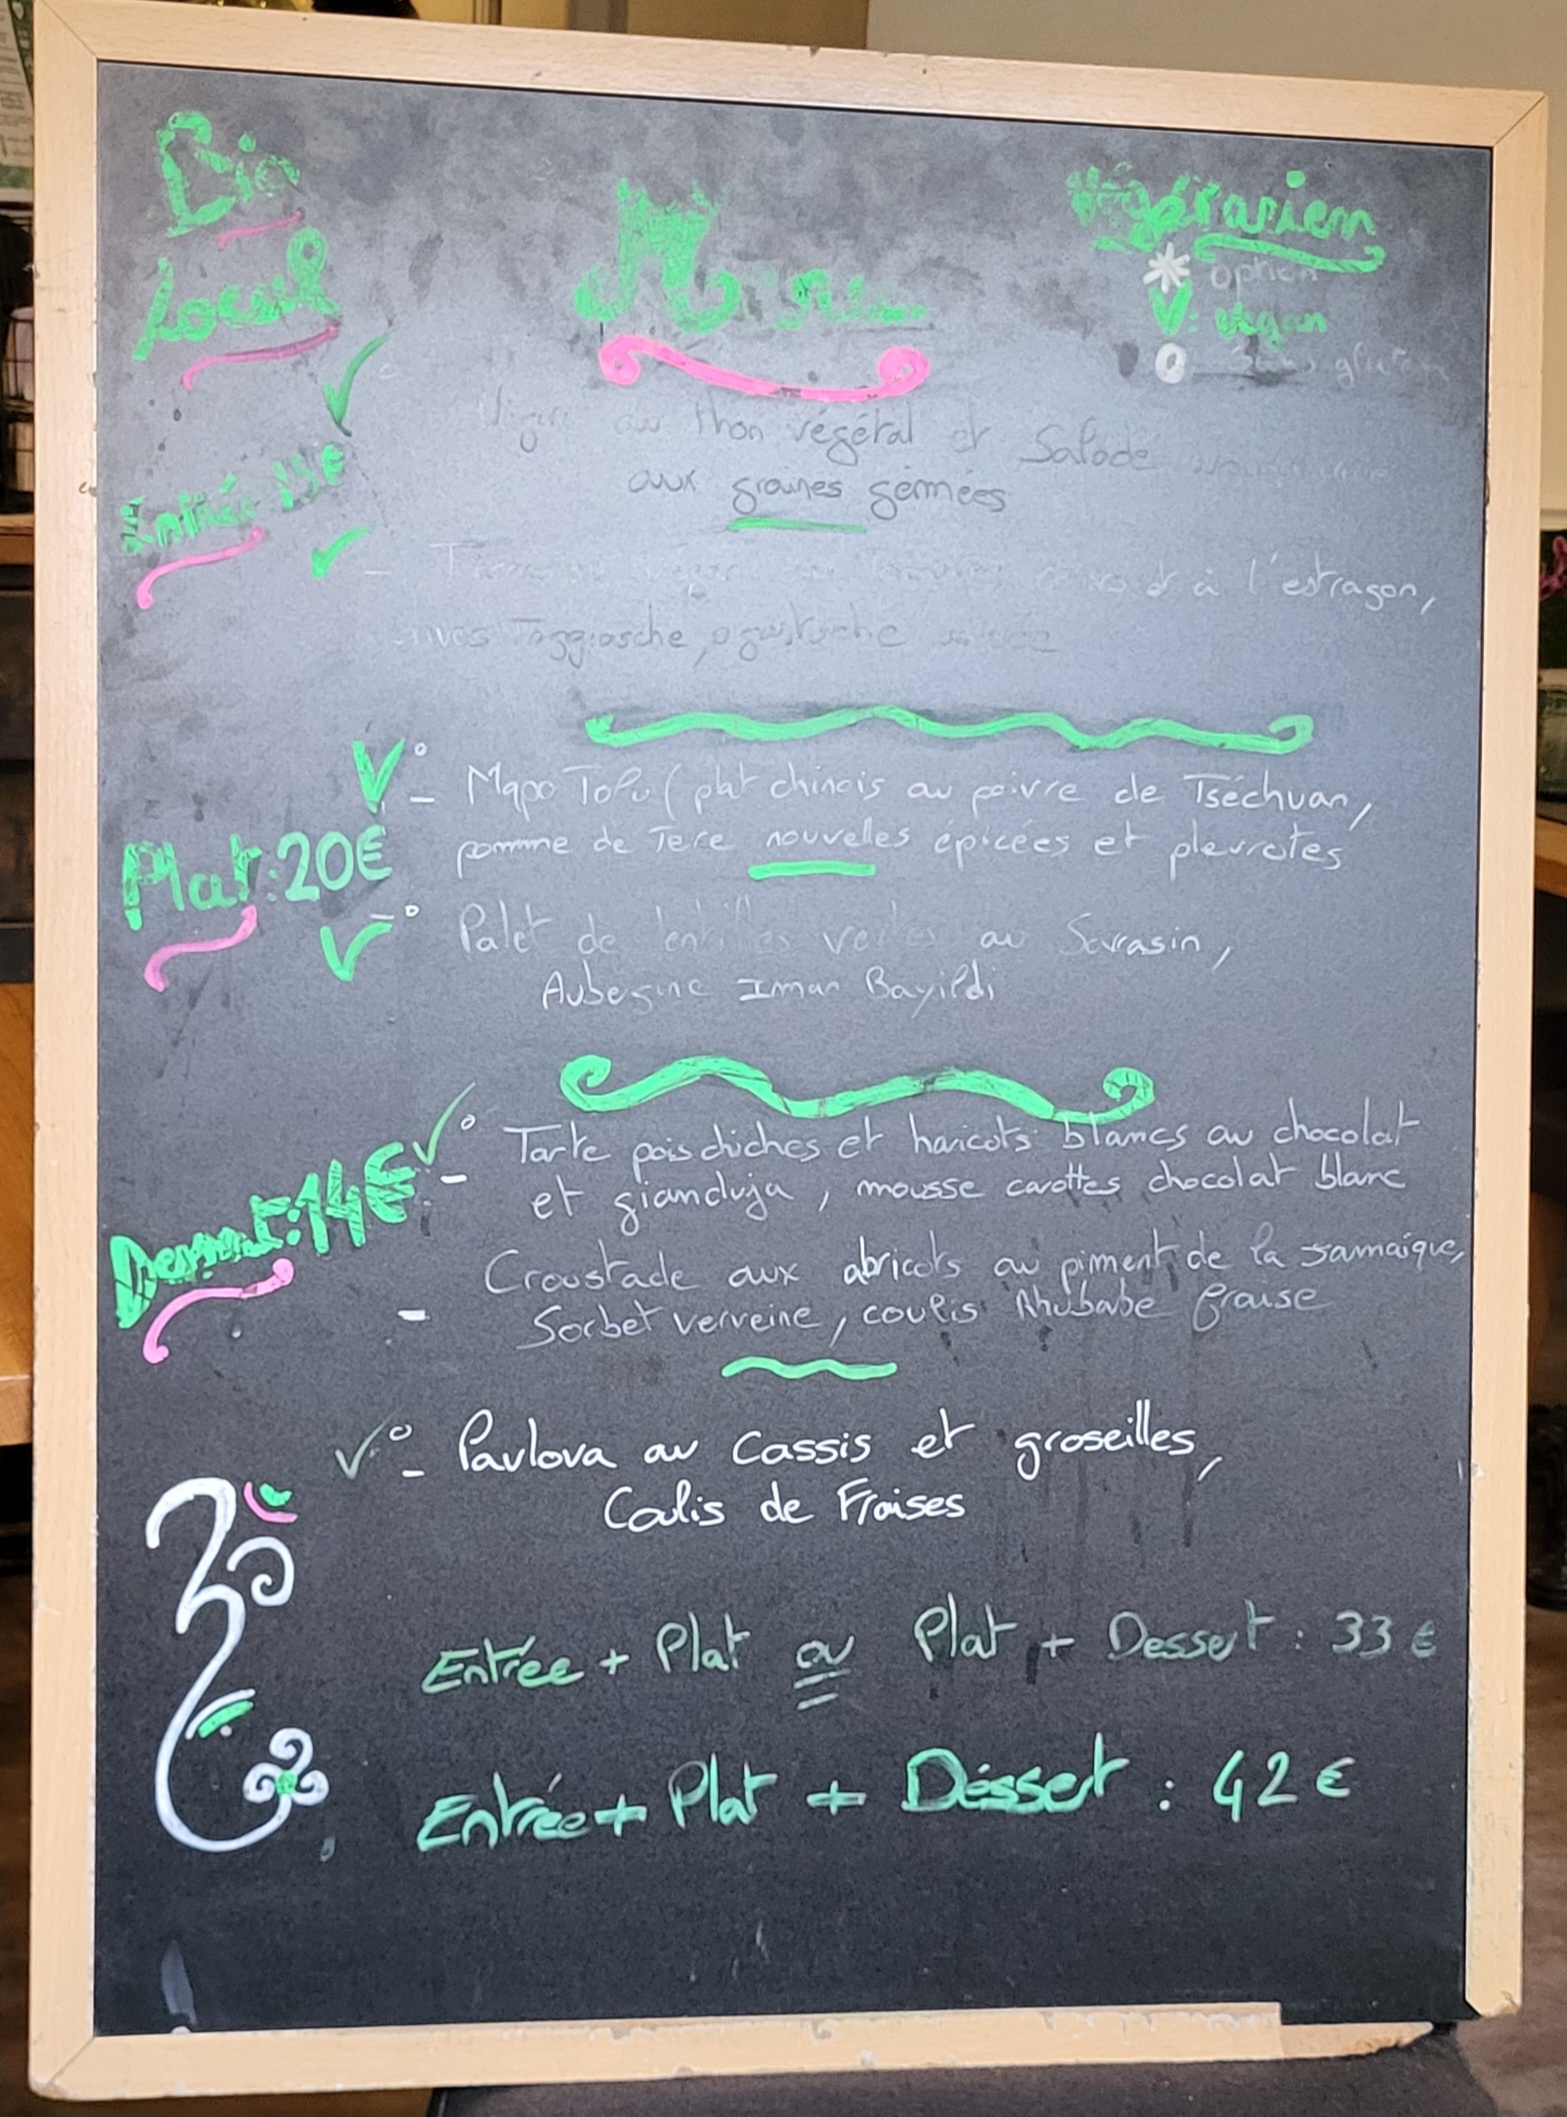 Bio
Local
Menu
Végétarien
* option
V: vegan
o Sans gluten
au thon végétal et Salade
aux graines germées
Entrée 15€
- à l'estragon,
Taggiasche, pistache
V° - Mapo Tofu (plat chinois au poivre de Tséchuan,
pomme de Tere nouvelles épicées et pleurotes
Plat: 20€
V -° Palet de lentilles vertes au Sarrasin,
Aubergine Iman Bayildi
V° - Tarte pois chiches et haricots blancs au chocolat
et gianduja, mousse carottes chocolat blanc
Dessert: 14€
- Croustade aux abricots au piment de la Jamaïque,
Sorbet verveine, coulis Rhubabe fraise
V° - Pavlova au Cassis et groseilles,
Coulis de Fraises
Entrée + Plat ou Plat + Dessert : 33 €
Entrée + Plat + Déssert : 42 €